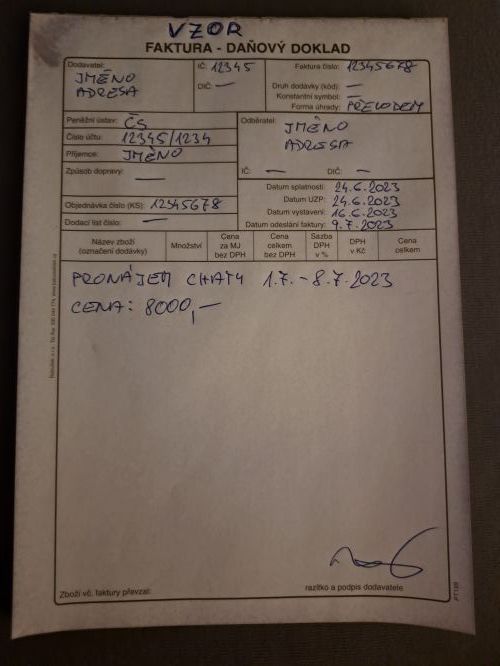 VZOR
FAKTURA - DAŇOVÝ DOKLAD
Dodavatel: JMÉNO ADRESA
IČ: 12345
DIČ: —
Faktura číslo: 12345678
Druh dodávky (kód): —
Konstantní symbol: —
Forma úhrady: PŘEVODEM
Peněžní ústav: ČS
Číslo účtu: 12345/1234
Příjemce: JMÉNO
Způsob dopravy: —
Odběratel: JMÉNO ADRESA
IČ: — DIČ: —
Objednávka číslo (KS): 12345678
Dodací list číslo: —
Datum splatnosti 24.6.2023
Datum UZP: 24.6.2023
Datum vystavení: 16.6.2023
Datum odeslání faktury: 9.7.2023
Název zboží (označení dodávky) Množství Cena za MJ bez DPH Cena celkem bez DPH Sazba DPH v % DPH v Kč Cena celkem
PRONÁJEM CHATY 1.7. – 8.7.2023
CENA: 8000,—
Zboží vč. faktury převzal:
razítko a podpis dodavatele
PT120